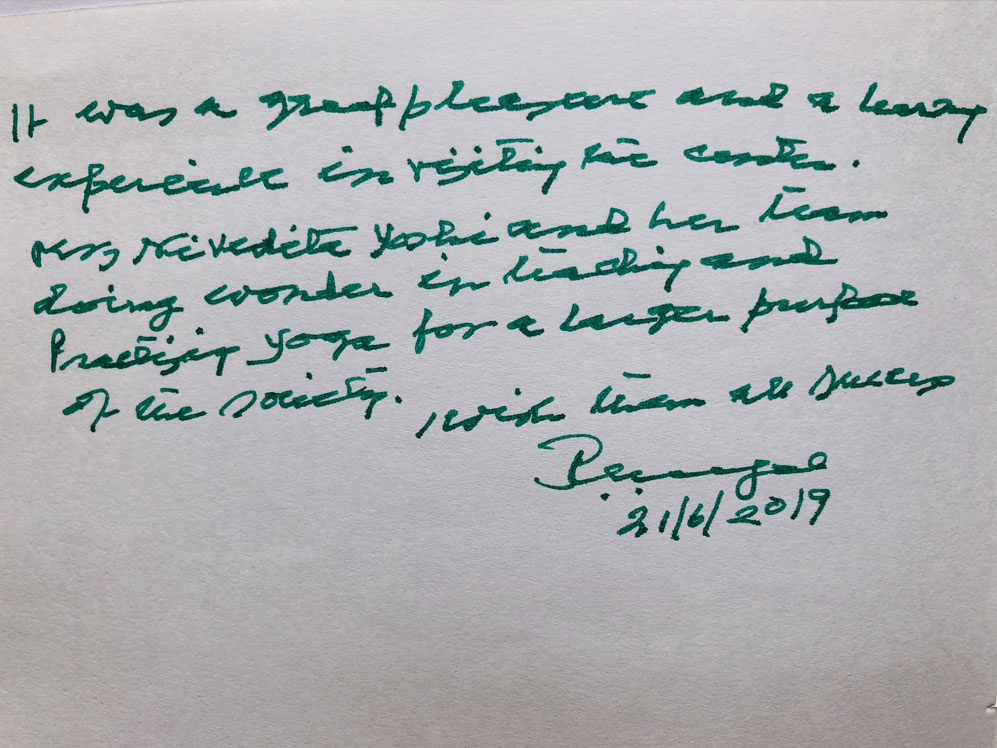 It was a great pleasure and a learning
experience in visiting the center.
Mrs Nivedita Joshi and her team
doing wonder in teaching and
Practising yoga for a larger purpose
of the society. I wish them all success
21/6/2019